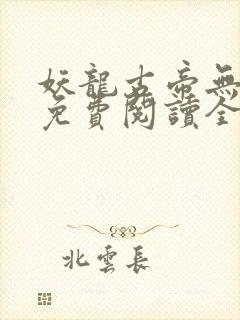 妖龍古帝無
免費閱讀全
北雲長